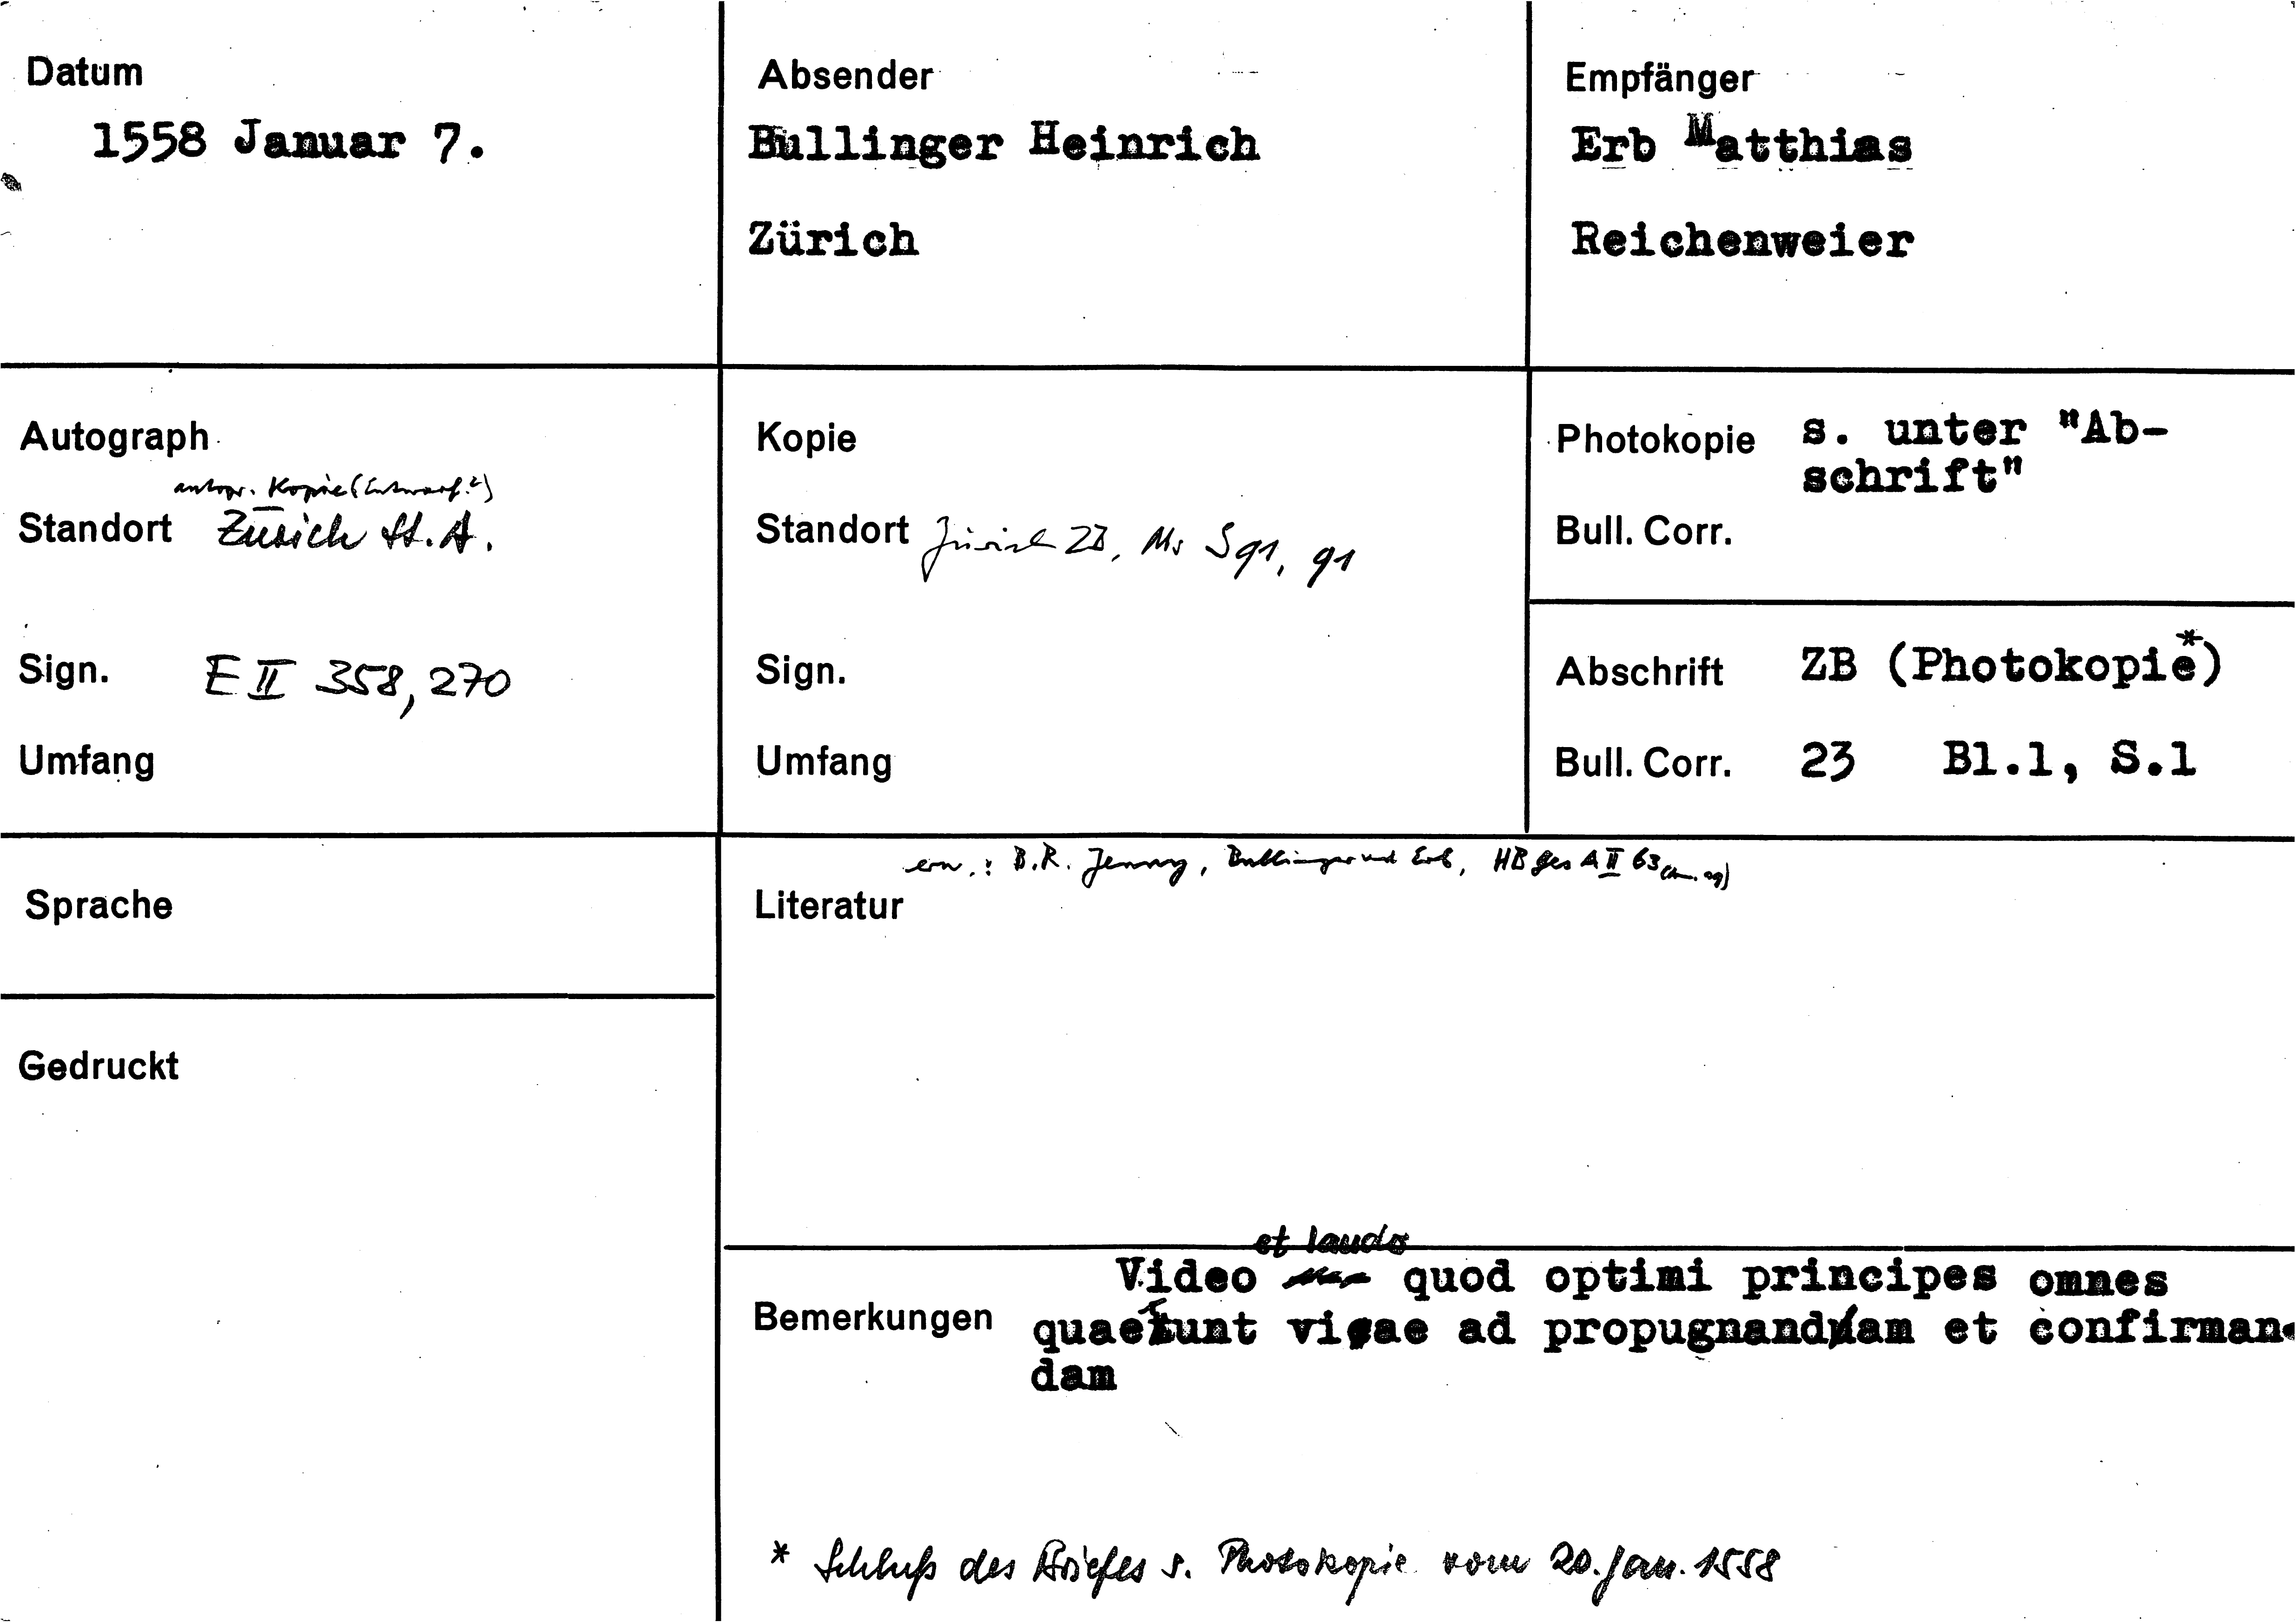 Datum
1558 Januar 7.
Absender
Bullinger Heinrich
Zürich
Empfänger
Erb Matthias
Reichenweier
Autograph
autogr. Kopie (Entwurf?)
Standort Zürich St.A.
Sign. E II 358, 270
Umfang
Kopie
Standort Zürich ZB, Ms S 91, 91
Sign.
Umfang
Photokopie s. unter "Ab-
schrift"
Bull. Corr.
Abschrift ZB (Photokopie*)
Bull. Corr. 23 Bl.1, S.1
Sprache
Gedruckt
erw.: B.R. Jenny, Bullinger und Erb, HB Ges A II 63
Literatur
et laudo
Video quod optimi principes omnes
Bemerkungen ad propugnandam et confirman-
dam
* Schluß des Briefes s. Photokopie vom 20. Jan. 1558